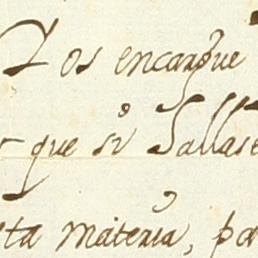 Y os encargue
que si Sallase
ta materia, pa